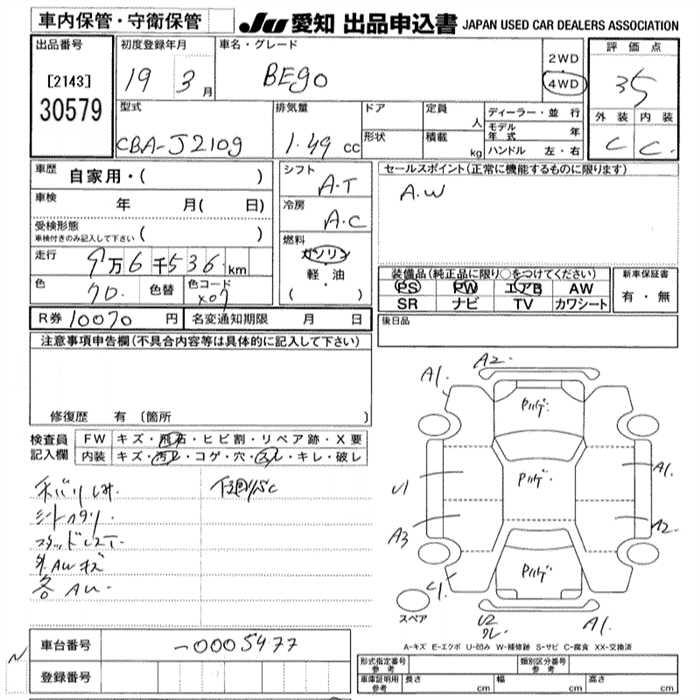 車内保管・守衛保管
JU 愛知 出品申込書 JAPAN USED CAR DEALERS ASSOCIATION
出品番号
[2143]
30579
初度登録年月
19 3月
車名・グレード
BEgo
2WD
4WD
評価点
35
外装 内装
C C
型式
CBA-J210g
排気量
1.49 cc
ドア
形状
定員 人
積載 kg
ディーラー・並行
モデル年式 年
ハンドル 左・右
車歴
自家用・( )
車検 年 月( 日)
受検形態
車検付きのみ記入して下さい ( )
走行 9万6千536km
色 クロ. 色替 色コード X07
R券 10070 円 名変通知期限 月 日
シフト
A.T
冷房
A.C
燃料
ガソリン
軽・油
( ・ )
セールスポイント(正常に機能するものに限ります)
A.W
装備品(純正品に限り○をつけてください)
PS PW エアB AW
SR ナビ TV カワシート
新車保証書
有・無
後日品
注意事項申告欄(不具合内容等は具体的に記入して下さい)
修復歴 有 (箇所 )
検査員
記入欄
FW キズ・飛石・ヒビ割・リペア跡・X要
内装 キズ・汚れ・コゲ・穴・スレ・キレ・破レ
シートヘタリ
外AWキズ
各AU.
下廻りSC
A2.
A1.
U1
A3
A1.
A2.
U1.
U2
A1.
スペア
A-キズ E-エクボ U-凹み W-補修跡 S-サビ C-腐食 XX-交換済
車台番号 -0005477
登録番号
N
形式指定番号 参考
類別区分番号 参考
車庫証明用 参考 長さ cm 幅 cm 高さ cm